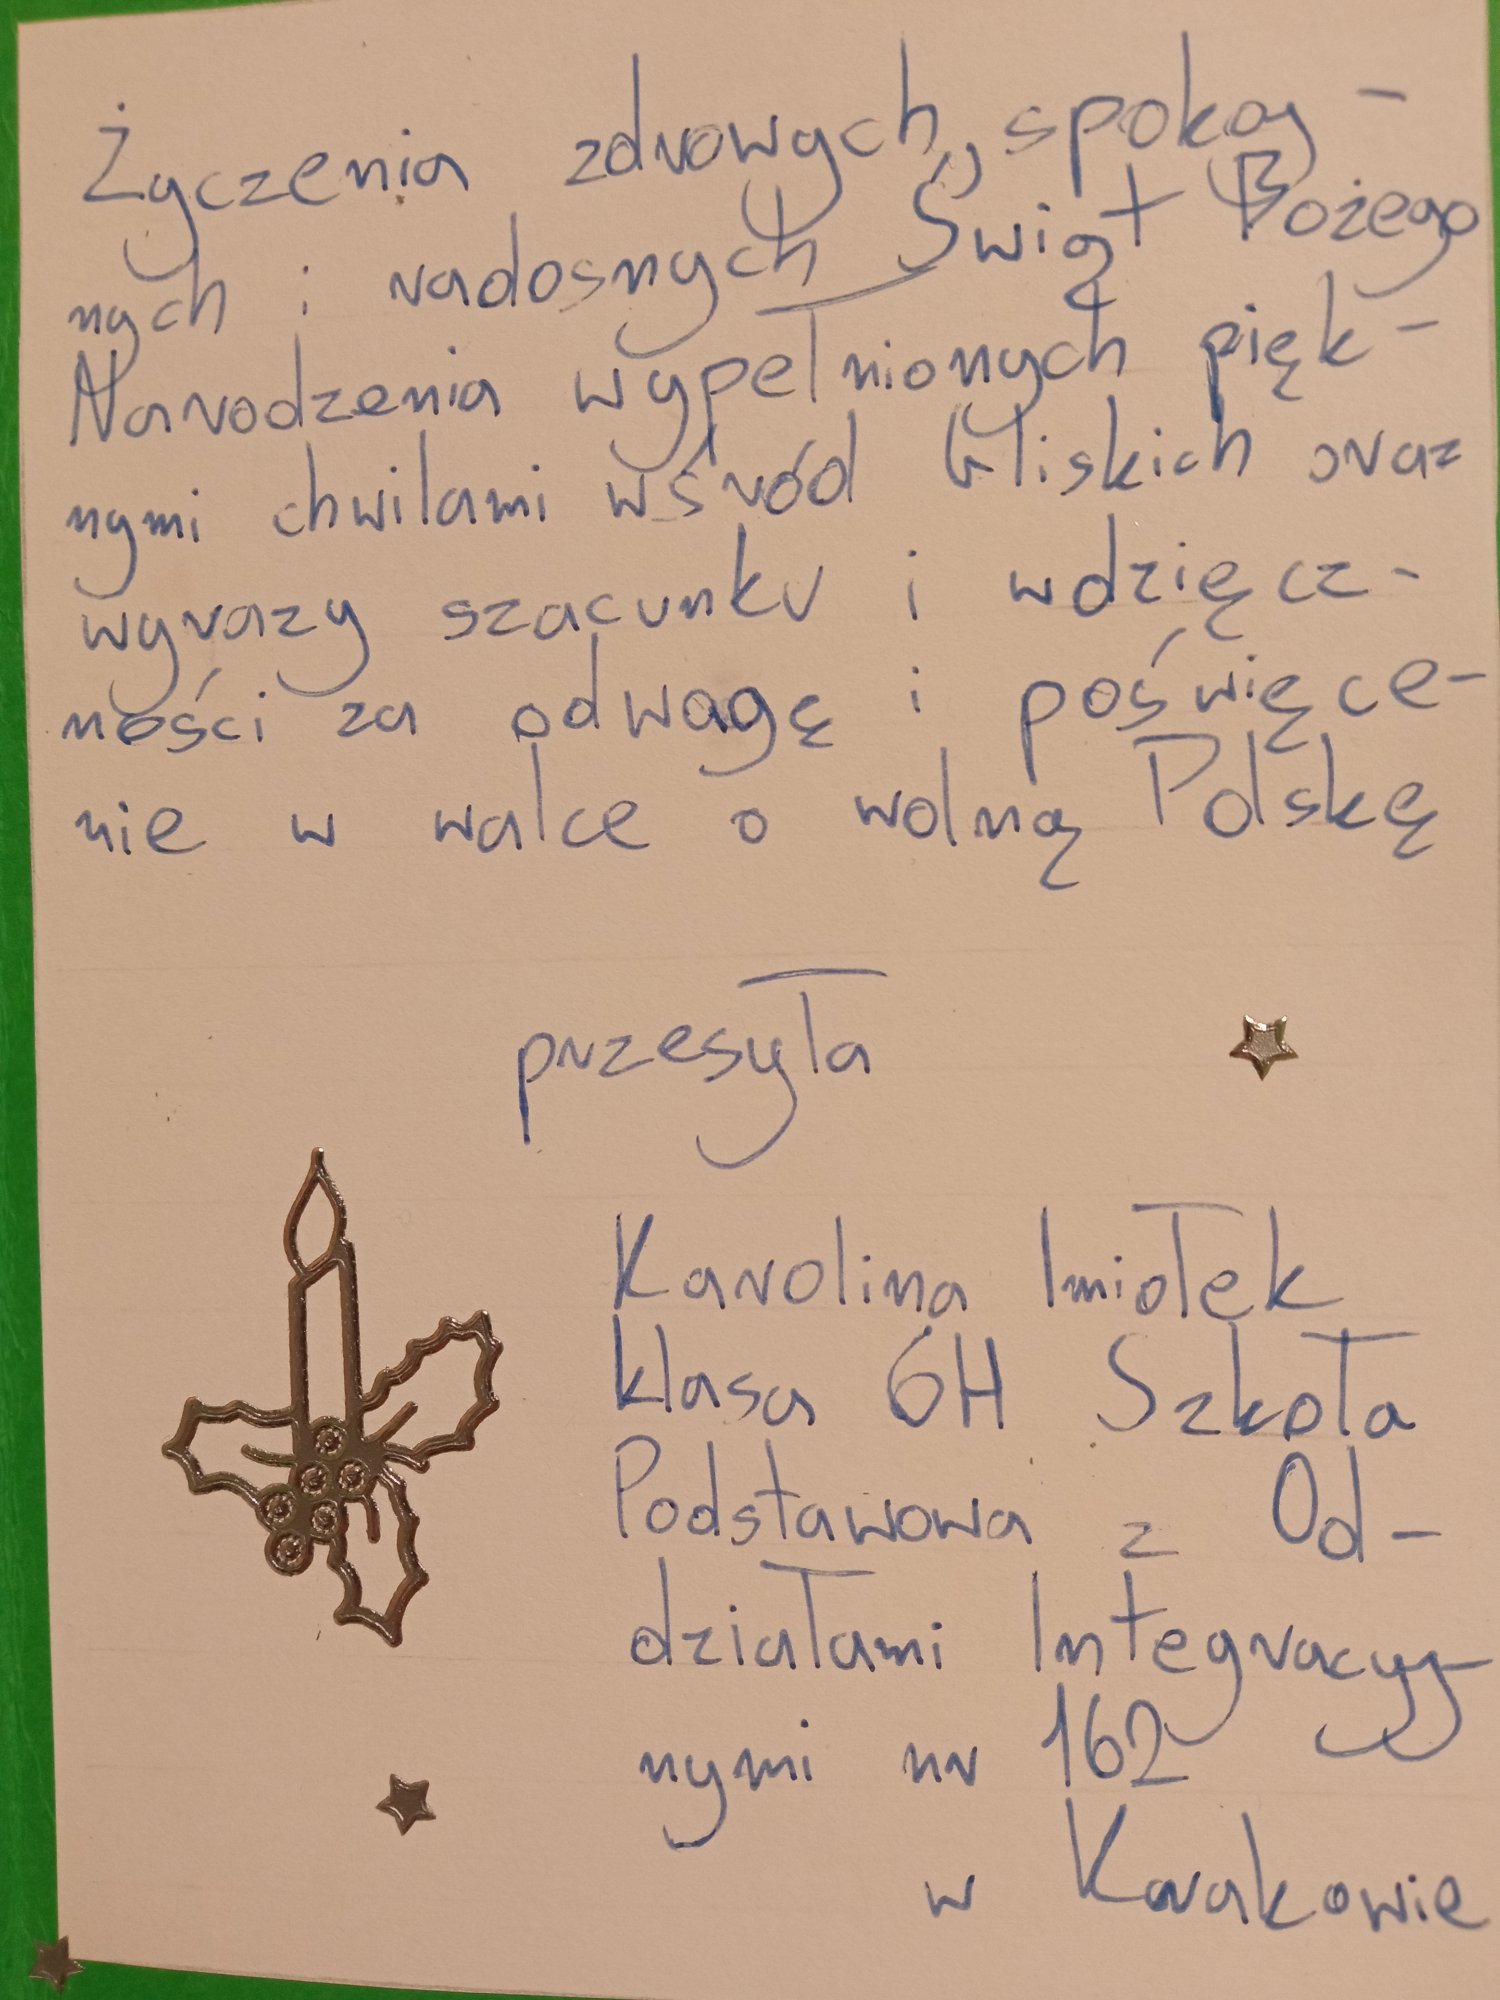 Życzenia zdrowych, spokoj-
nych i radosnych Świąt Bożego
Narodzenia wypełnionych pięk-
nymi chwilami wśród bliskich oraz
wyrazy szacunku i wdzięcz-
ności za odwagę i poświęce-
nie w walce o wolną Polskę
przesyła
Karolina Imiołek
klasa 6H Szkoła
Podstawowa z Od-
działami Integracyj-
nymi nr 162
w Krakowie